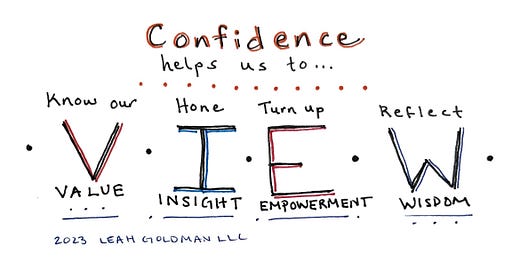 Confidence
helps us to...
Know our Hone Turn up Reflect
V I E W
VALUE INSIGHT EMPOWERMENT WISDOM
2023 LEAH GOLDMAN LLC